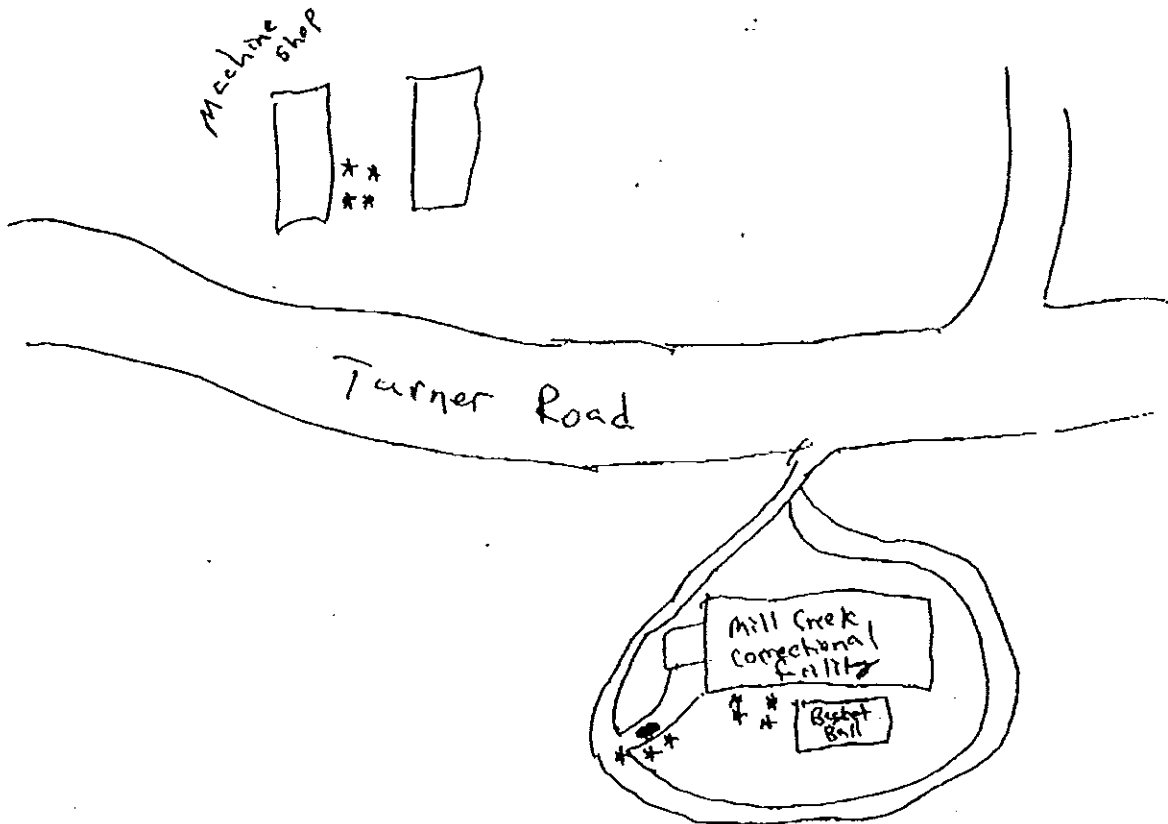 Machine
Shop
Turner Road
Mill Creek
Correctional
Facility
Basket
Ball